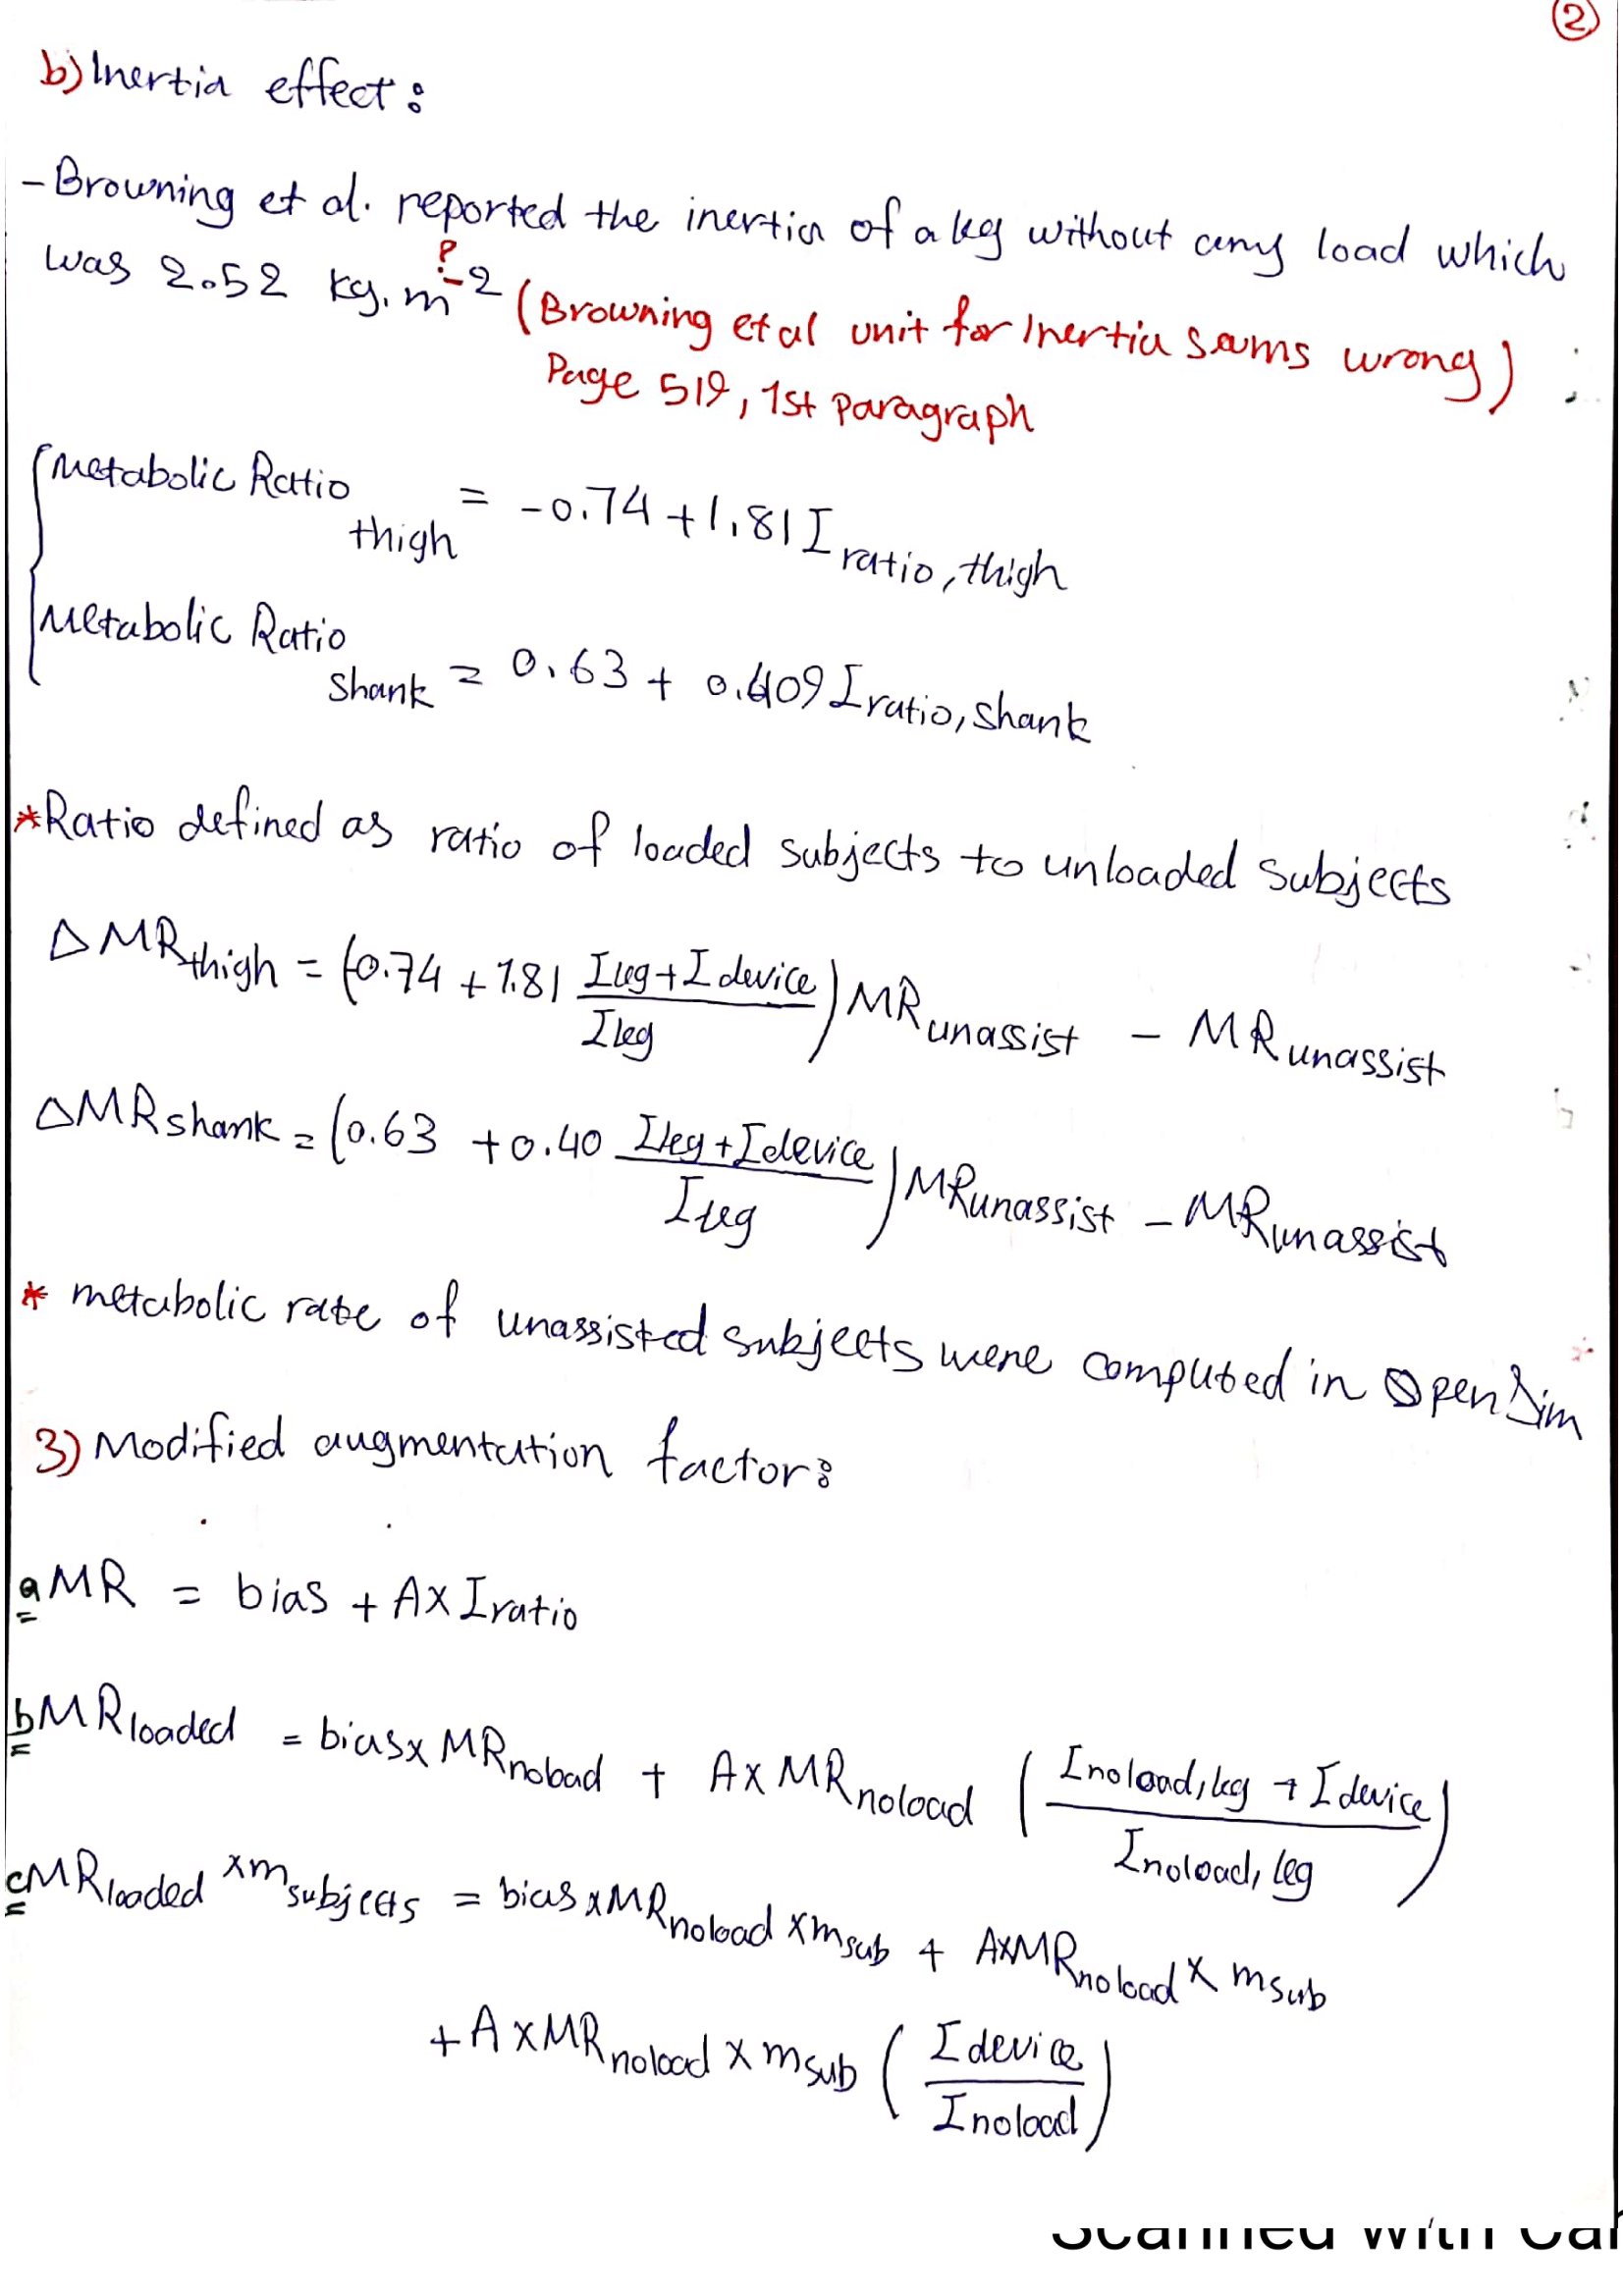 2
b) Inertia effect:
- Browning et al. reported the inertia of a leg without any load which
was 2.52 kg.m^-2 ? (Browning et al unit for Inertia seams wrong)
Page 519, 1st paragraph
Metabolic Ratio thigh = -0.74 + 1.81 I ratio, thigh
Metabolic Ratio Shank = 0.63 + 0.409 I ratio, shank
*Ratio defined as ratio of loaded subjects to unloaded subjects
ΔMR thigh = (-0.74 + 1.81 (I leg + I device) / I leg) MR unassist - MR unassist
ΔMR shank = (0.63 + 0.40 (I leg + I device) / I leg) MR unassist - MR unassist
* metabolic rate of unassisted subjects were computed in OpenSim
3) Modified augmentation factor:
a MR = bias + A x I ratio
b MR loaded = bias x MR noload + A x MR noload ((I noload, leg + I device) / I noload, leg)
c MR loaded x m subjects = bias x MR noload x m sub + A x MR noload x m sub
+ A x MR noload x m sub (I device / I noload)